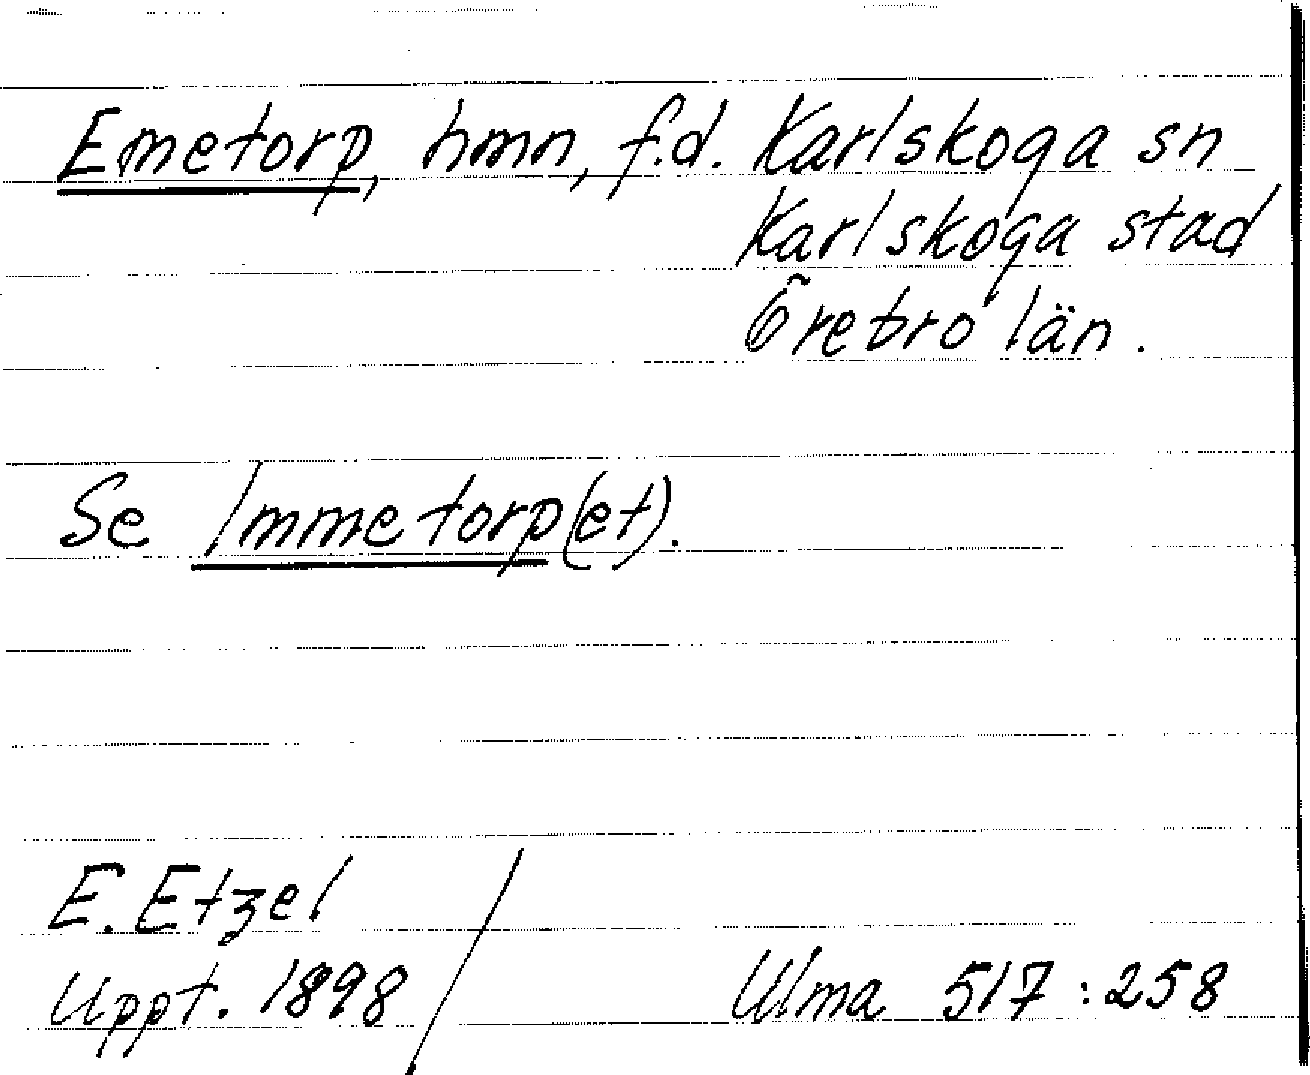 Emetorp, hmn, f.d. Karlskoga sn
Karlskoga stad
Örebro län.
Se Immetorp(et).
E. Etzel
Uppt. 1898
Ulma 517:258